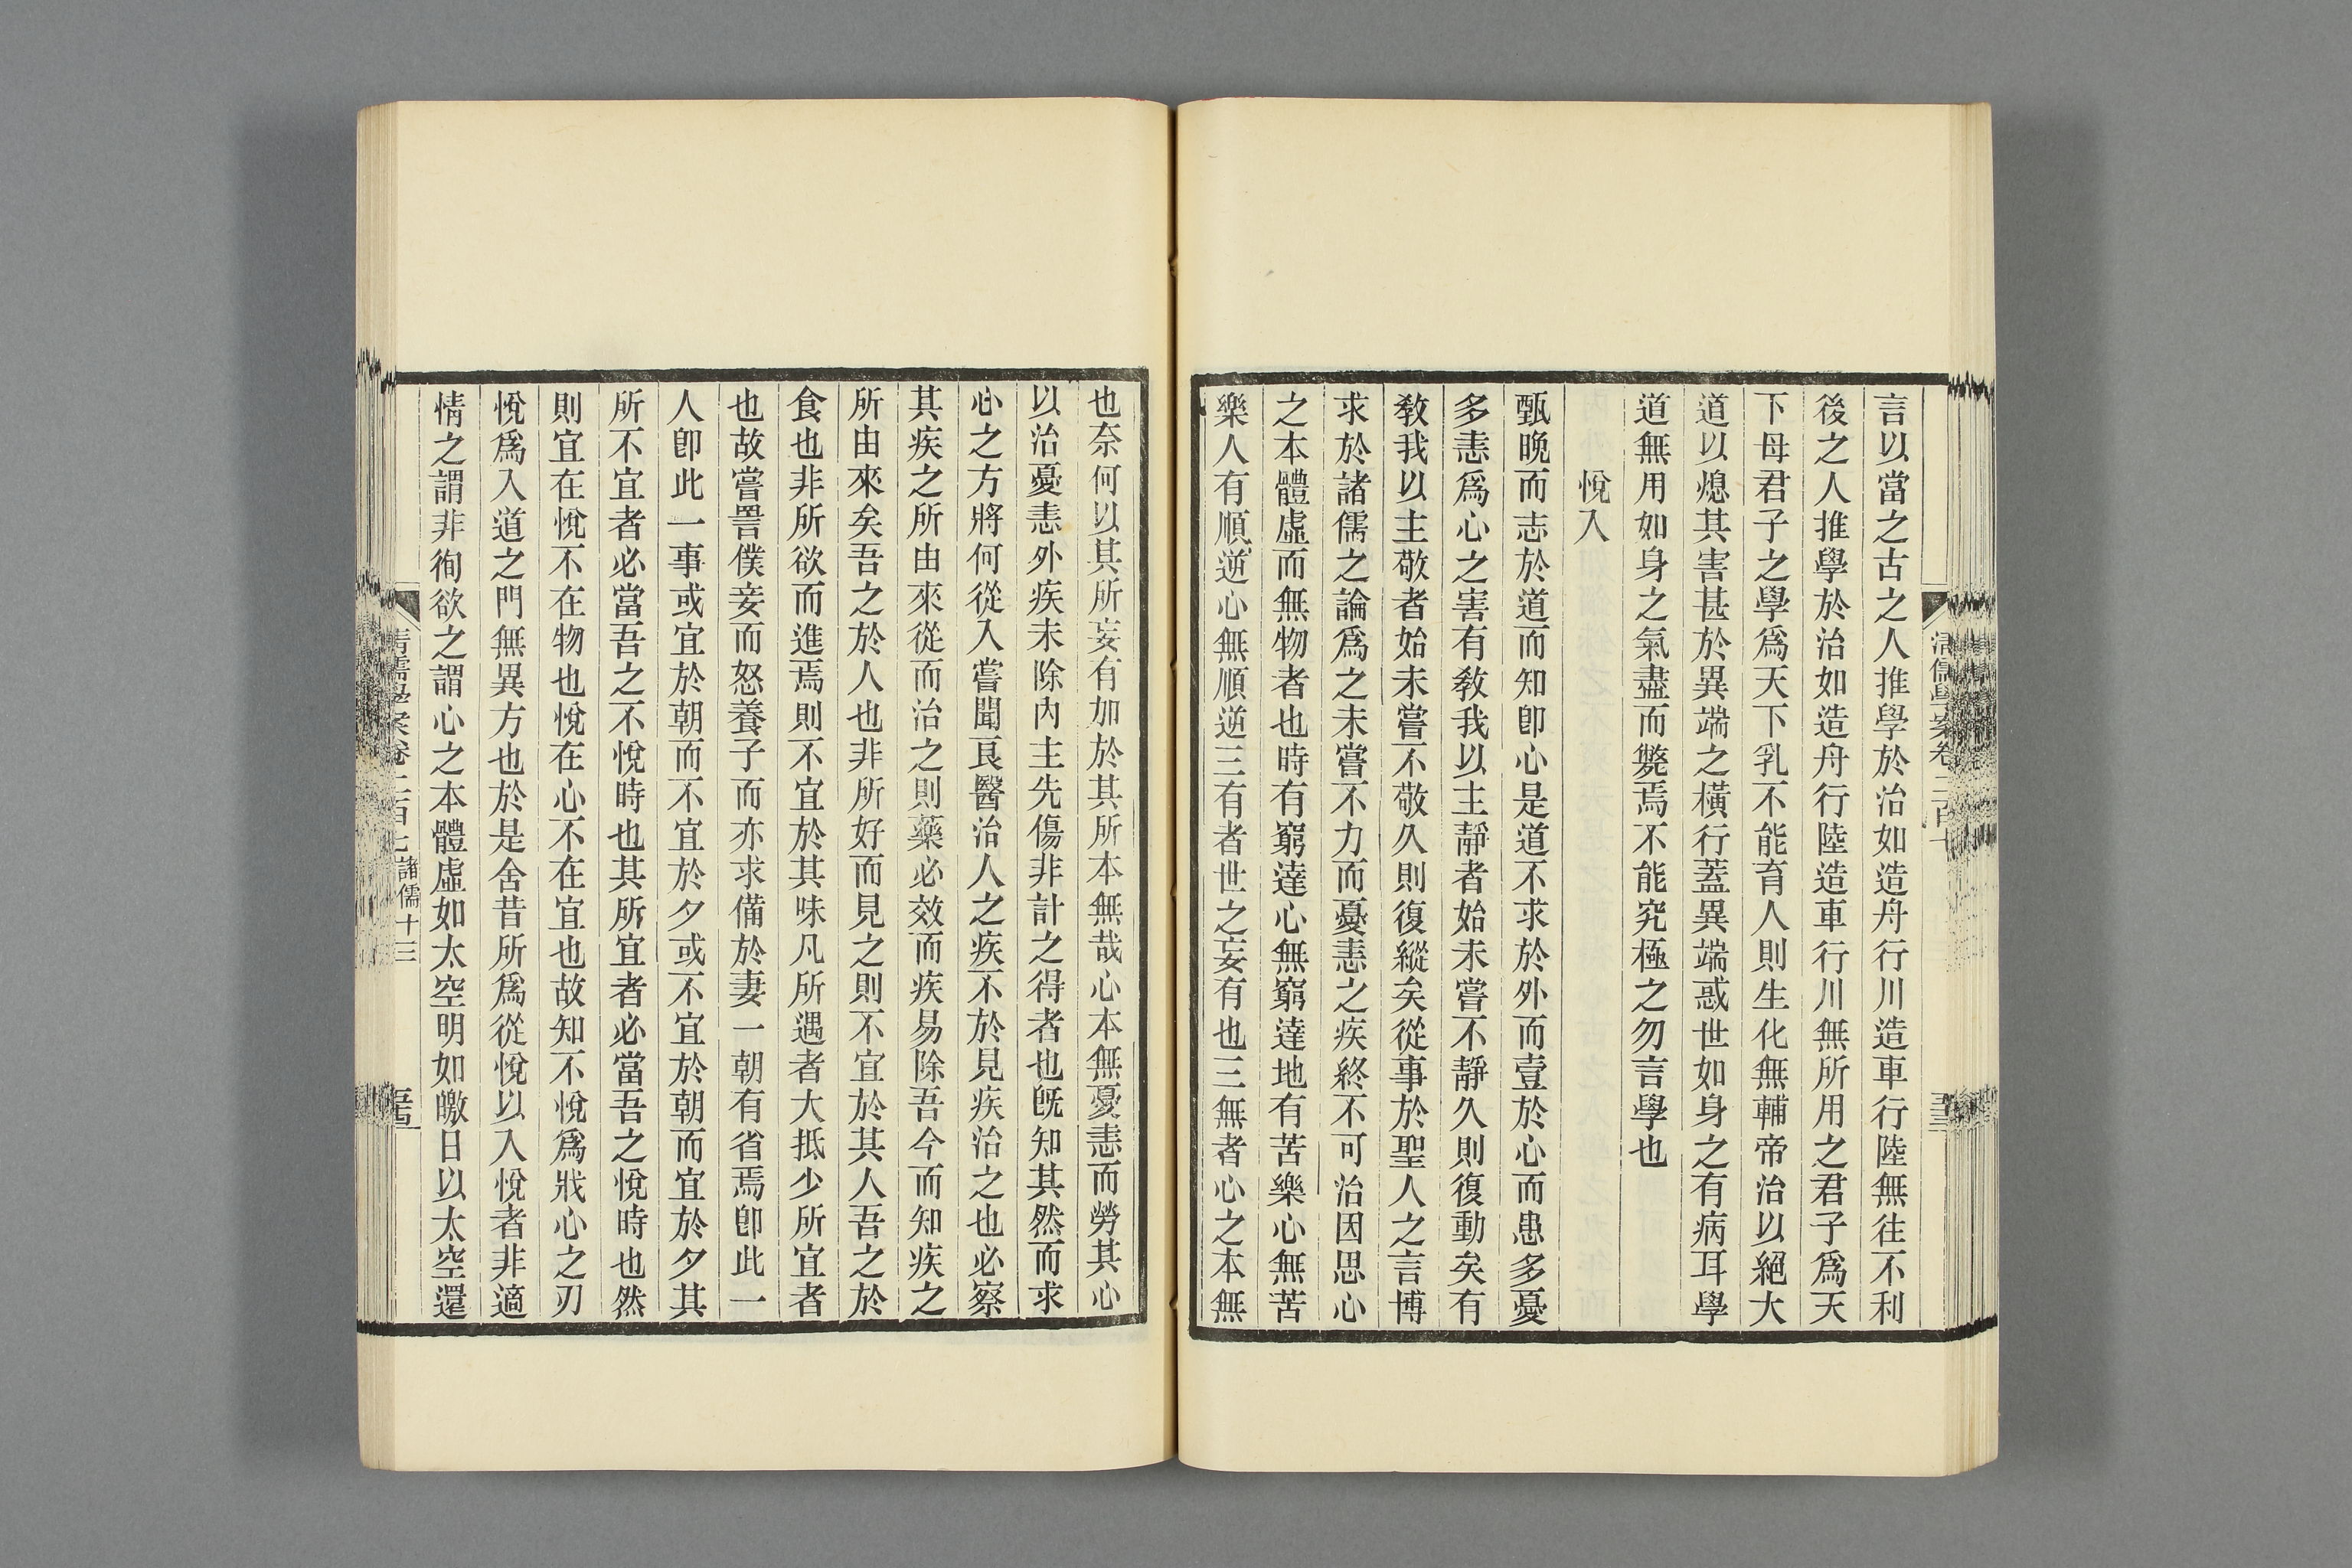 言以當之古之人推學於治如造舟行川造車行陸無往不利
後之人推學於治如造舟行陸造車行川無所用之君子爲天
下母君子之學爲天下乳不能育人則生化無輔帝治以絕大
道以熄其害甚於異端之橫行蓋異端惑世如身之有病耳學
道無用如身之氣盡而斃焉不能究極之勿言學也
悅入
甄晚而志於道而知卽心是道不求於外而壹於心而患多憂
多恚爲心之害有敎我以主靜者始未嘗不靜久則復動矣有
敎我以主敬者始未嘗不敬久則復縱矣從事於聖人之言博
求於諸儒之論爲之未嘗不力而憂恚之疾終不可治因思心
之本體虛而無物者也時有窮達心無窮達地有苦樂心無苦
樂人有順逆心無順逆三有者世之妄有也三無者心之本無
也奈何以其所妄有加於其所本無哉心本無憂恚而勞其心
以治憂恚外疾未除內主先傷非計之得者也旣知其然而求
心之方將何從入嘗聞良醫治人之疾不於見疾治之也必察
其疾之所由來從而治之則藥必效而疾易除吾今而知疾之
所由來矣吾之於人也非所好而見之則不宜於其人吾之於
食也非所欲而進焉則不宜於其味凡所遇者大抵少所宜者
也故嘗詈僕妾而怒養子而亦求備於妻一朝有省焉卽此一
人卽此一事或宜於朝而不宜於夕或不宜於朝而宜於夕其
所不宜者必當吾之不悅時也其所宜者必當吾之悅時也然
則宜在悅不在物也悅在心不在宜也故知不悅爲戕心之刃
悅爲入道之門無異方也於是舍昔所爲從悅以入悅者非適
情之謂非徇欲之謂心之本體虛如太空明如皦日以太空還
清儒學案卷二百七 諸儒十三